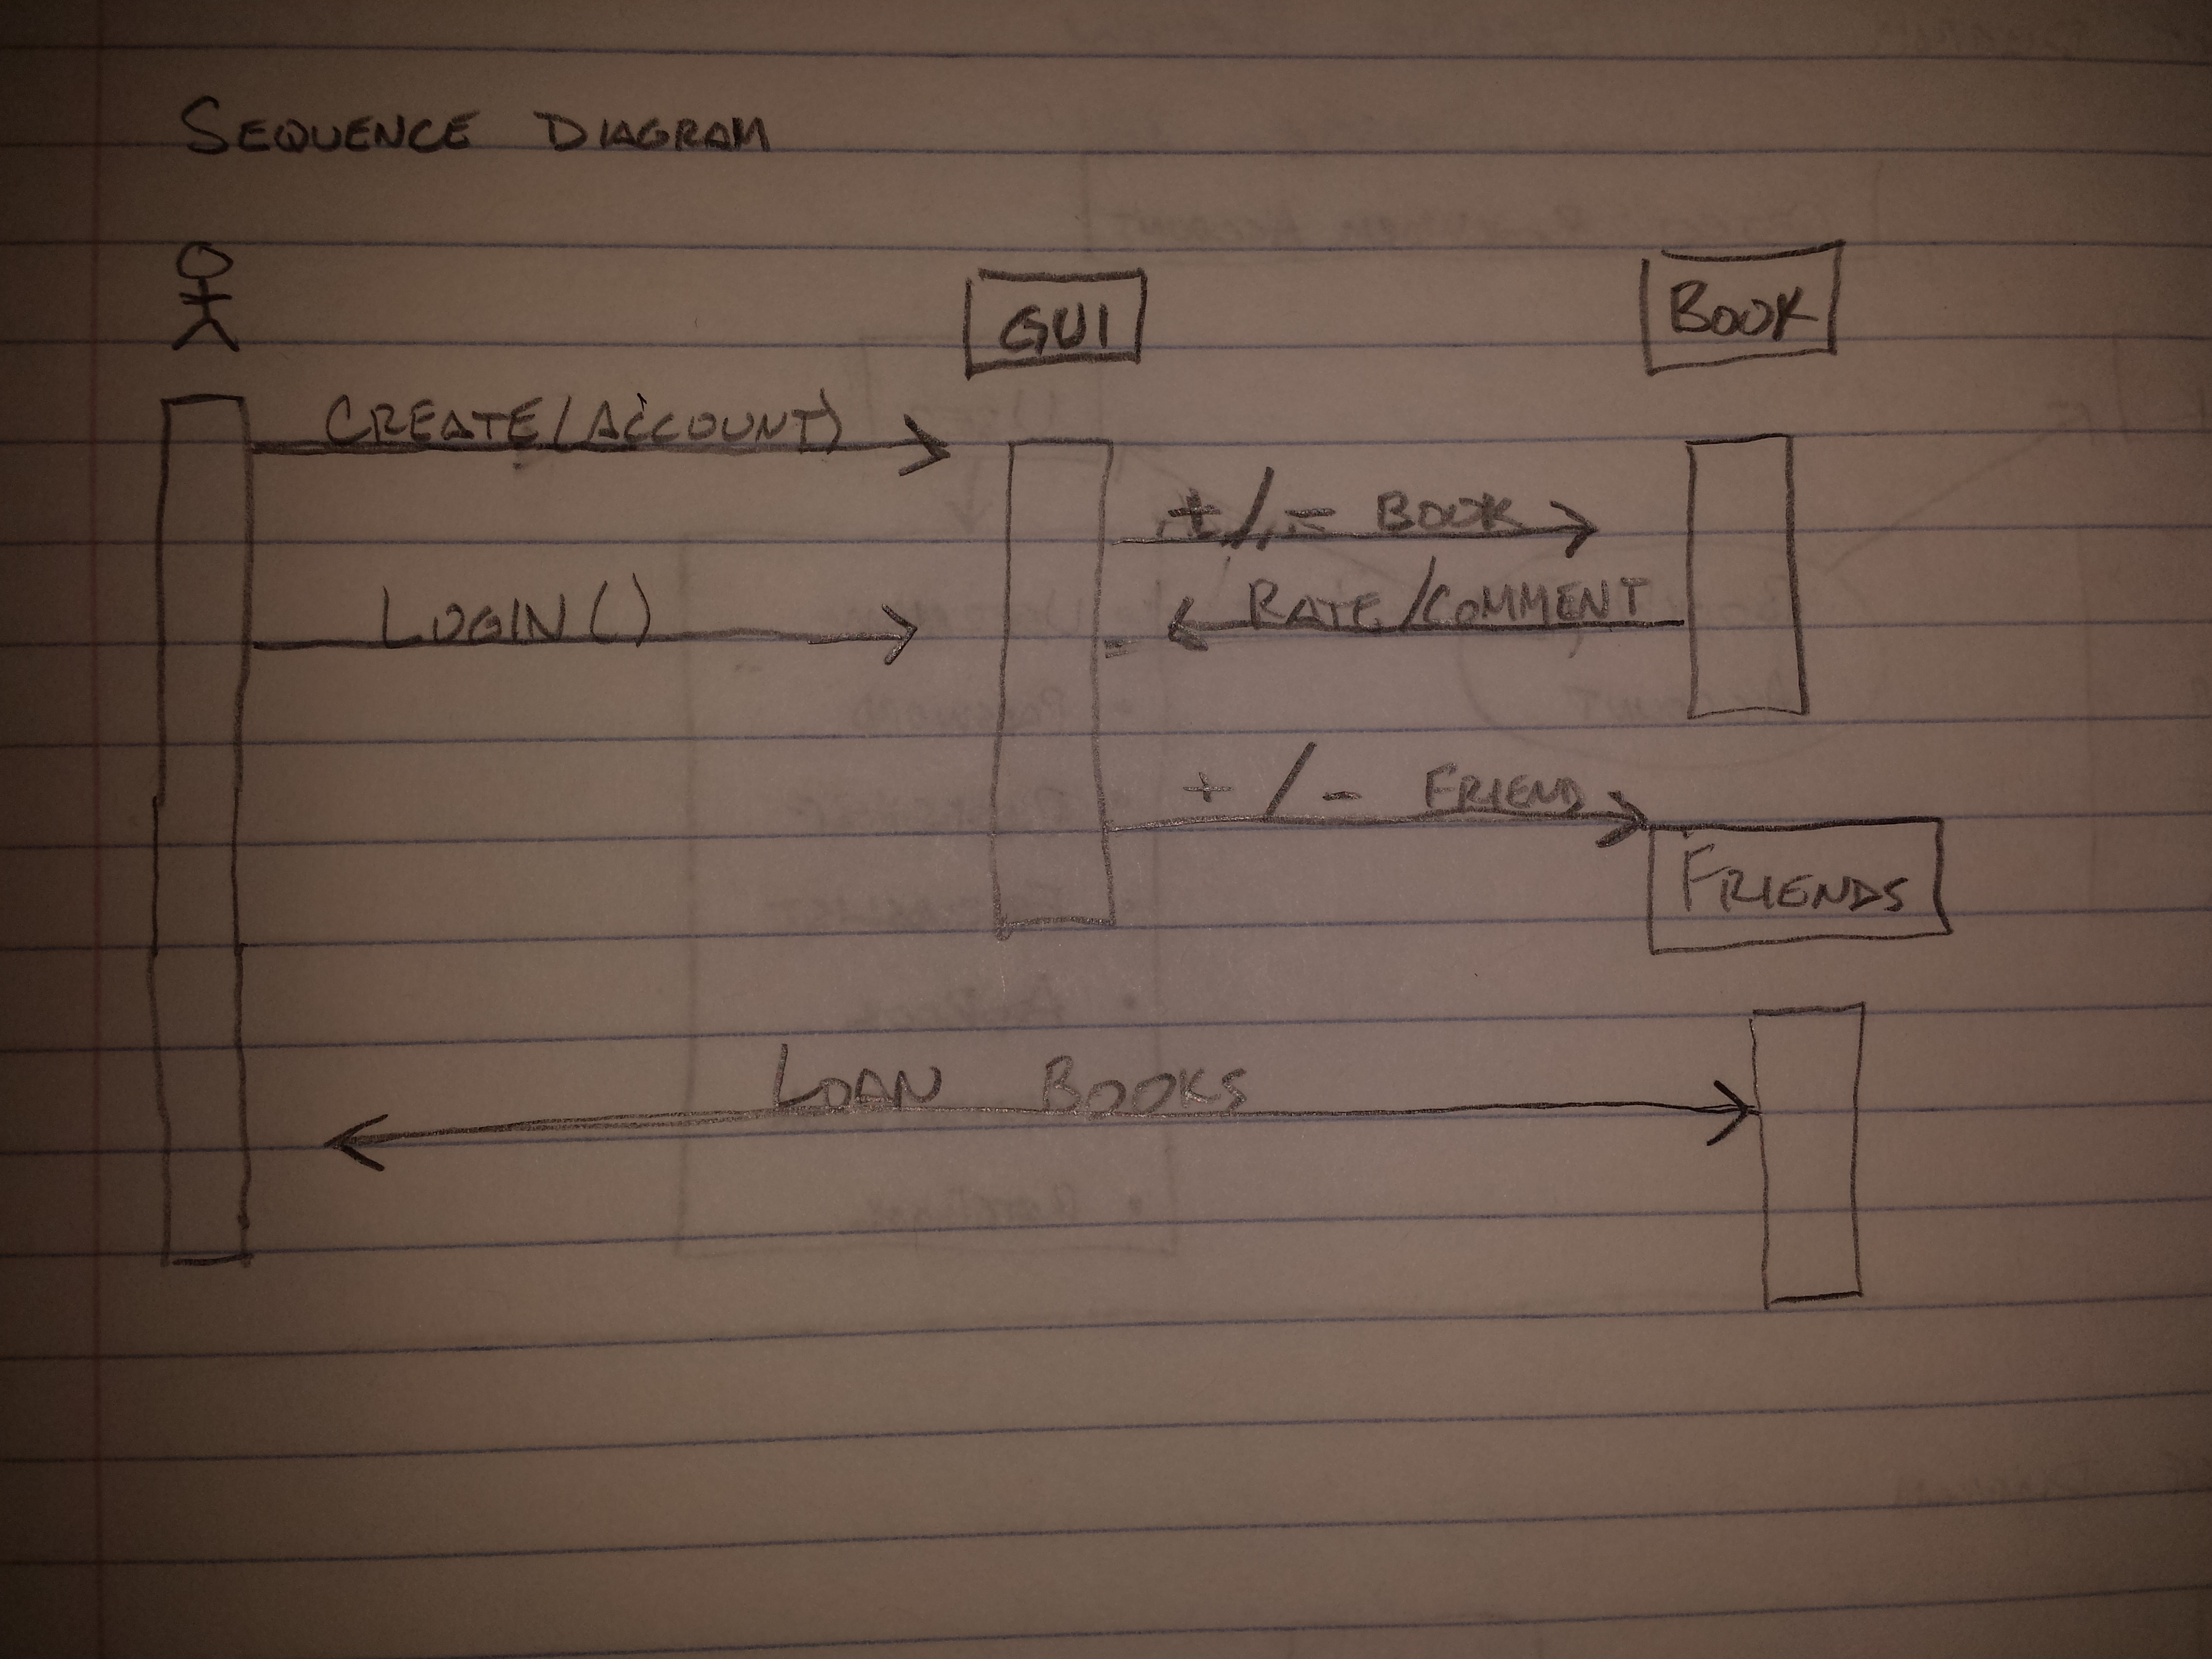 SEQUENCE DIAGRAM
GUI
BOOK
CREATE(ACCOUNT)
+/- BOOK
LOGIN()
RATE/COMMENT
+/- FRIEND
FRIENDS
LOAN BOOKS